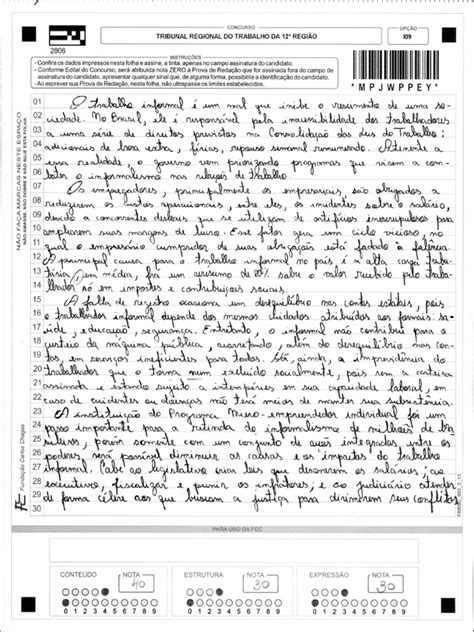 CONCURSO
TRIBUNAL REGIONAL DO TRABALHO DA 12ª REGIÃO
OPÇÃO
I09
2806
INSTRUÇÕES
- Confira os dados impressos nesta folha e assine, a tinta, apenas no campo assinatura do candidato.
- Conforme Edital do Concurso, será atribuída nota ZERO à Prova de Redação que for assinada fora do campo de assinatura do candidato, apresentar qualquer sinal que, de alguma forma, possibilite a identificação do candidato.
- Ao escrever sua Prova de Redação, nesta folha, não ultrapasse os limites estabelecidos.
*MPJWPPEY*
NÃO FAÇA MARCAS NESTE ESPAÇO
01 O trabalho informal é um mal que inibe o crescimento de uma so-
02 ciedade. No Brasil, ele é responsável pela inacessibilidade dos trabalhadores
03 a uma série de direitos previstos na Consolidação das Leis do Trabalho:
04 adicionais de hora extra, férias, repouso semanal remunerado. Atenente a
05 essa realidade, o governo vem priorizando programas que visem a com-
06 bater o informalismo nas relações de trabalho.
07 Os empregadores, principalmente os empresariais, são obrigados a
08 reduzirem os custos operacionais, entre eles, os incidentes sobre o salário,
09 devido a concorrentes desleais que se utilizam de artifícios inescrupulosos para
10 ampliarem suas margens de lucro. Esse fator gera um ciclo vicioso, no
11 qual o empresário cumpridor de suas obrigações está fadado à falência.
12 A principal causa para o trabalho informal no país é a alta carga tribu-
13 tária, em média, há um acréscimo de 80% sobre o valor recebido pelo traba-
14 lhador só em impostos e contribuições sociais.
15 A falta de registro ocasiona um desequilíbrio nas contas estatais, pois
16 o trabalhador informal depende dos mesmos cuidados atribuídos aos formais: sa-
17 úde, educação, segurança. Entretanto, o informal não contribui para o
18 custeio da máquina pública, acarretando, além do desequilíbrio nas con-
19 tas, em serviços ineficientes para todos. Há, ainda, a imprevidência do
20 trabalhador que o torna num excluído socialmente, pois sem a carteira
21 assinada e estando sujeito a intempéries em sua capacidade laboral, em
22 caso de acidentes ou doenças não terá meios de manter sua subsistência.
23 A instituição do Programa Micro-empreendedor individual foi um
24 passo importante para a retirada do informalismo de milhares de bra-
25 sileiros, porém somente com um conjunto de ações integradas entre os
26 poderes, será possível diminuir as causas e os impactos do trabalho
27 informal. Cabe ao legislativo criar leis que desonerem os salários; ao
28 executivo, fiscalizar e punir os infratores; e ao judiciário atender
29 de forma célere aos que buscam a justiça para dirimirem seus conflitos.
30
Fundação Carlos Chagas
PARA USO DA FCC
CONTEÚDO NOTA 40
ESTRUTURA NOTA 30
EXPRESSÃO NOTA 30
0 1 2 3 4 5 6 7 8 9
0 1 2 3 4 5 6 7 8 9
0 1 2 3 4 5 6 7 8 9